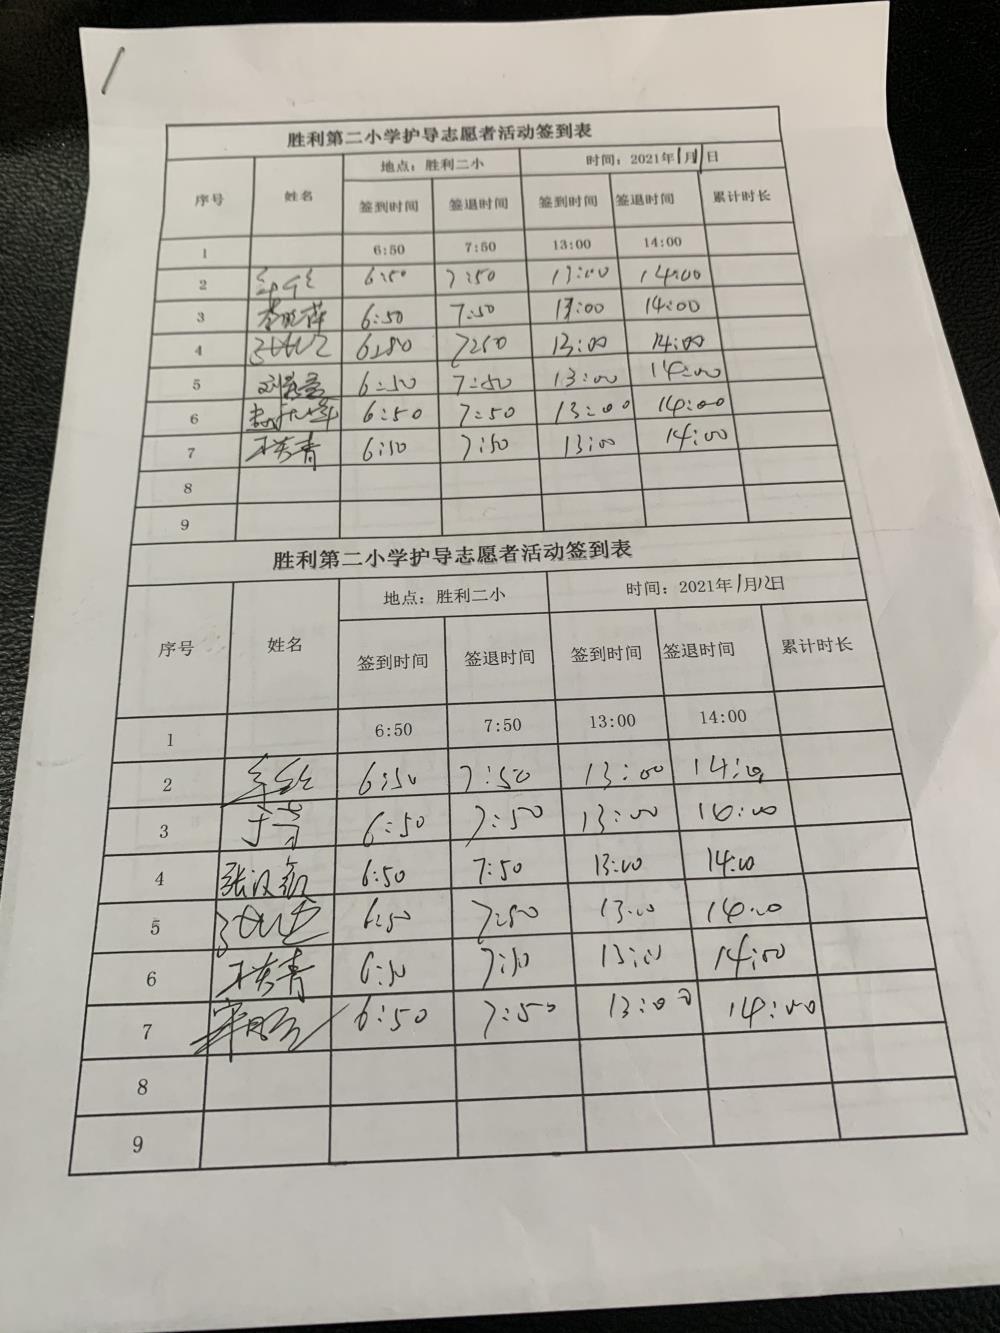 胜利第二小学护导志愿者活动签到表
序号 姓名 地点：胜利二小 时间：2021年1月11日
签到时间 签退时间 签到时间 签退时间 累计时长
1 6:50 7:50 13:00 14:00
2 6:50 7:50 13:00 14:00
3 6:50 7:50 13:00 14:00
4 6:50 7:50 13:00 14:00
5 6:50 7:50 13:00 14:00
6 6:50 7:50 13:00 14:00
7 6:50 7:50 13:00 14:00
8
9
胜利第二小学护导志愿者活动签到表
序号 姓名 地点：胜利二小 时间：2021年1月12日
签到时间 签退时间 签到时间 签退时间 累计时长
1 6:50 7:50 13:00 14:00
2 6:50 7:50 13:00 14:00
3 6:50 7:50 13:00 14:00
4 6:50 7:50 13:00 14:00
5 6:50 7:50 13:00 14:00
6 6:50 7:50 13:00 14:00
7 6:50 7:50 13:00 14:00
8
9